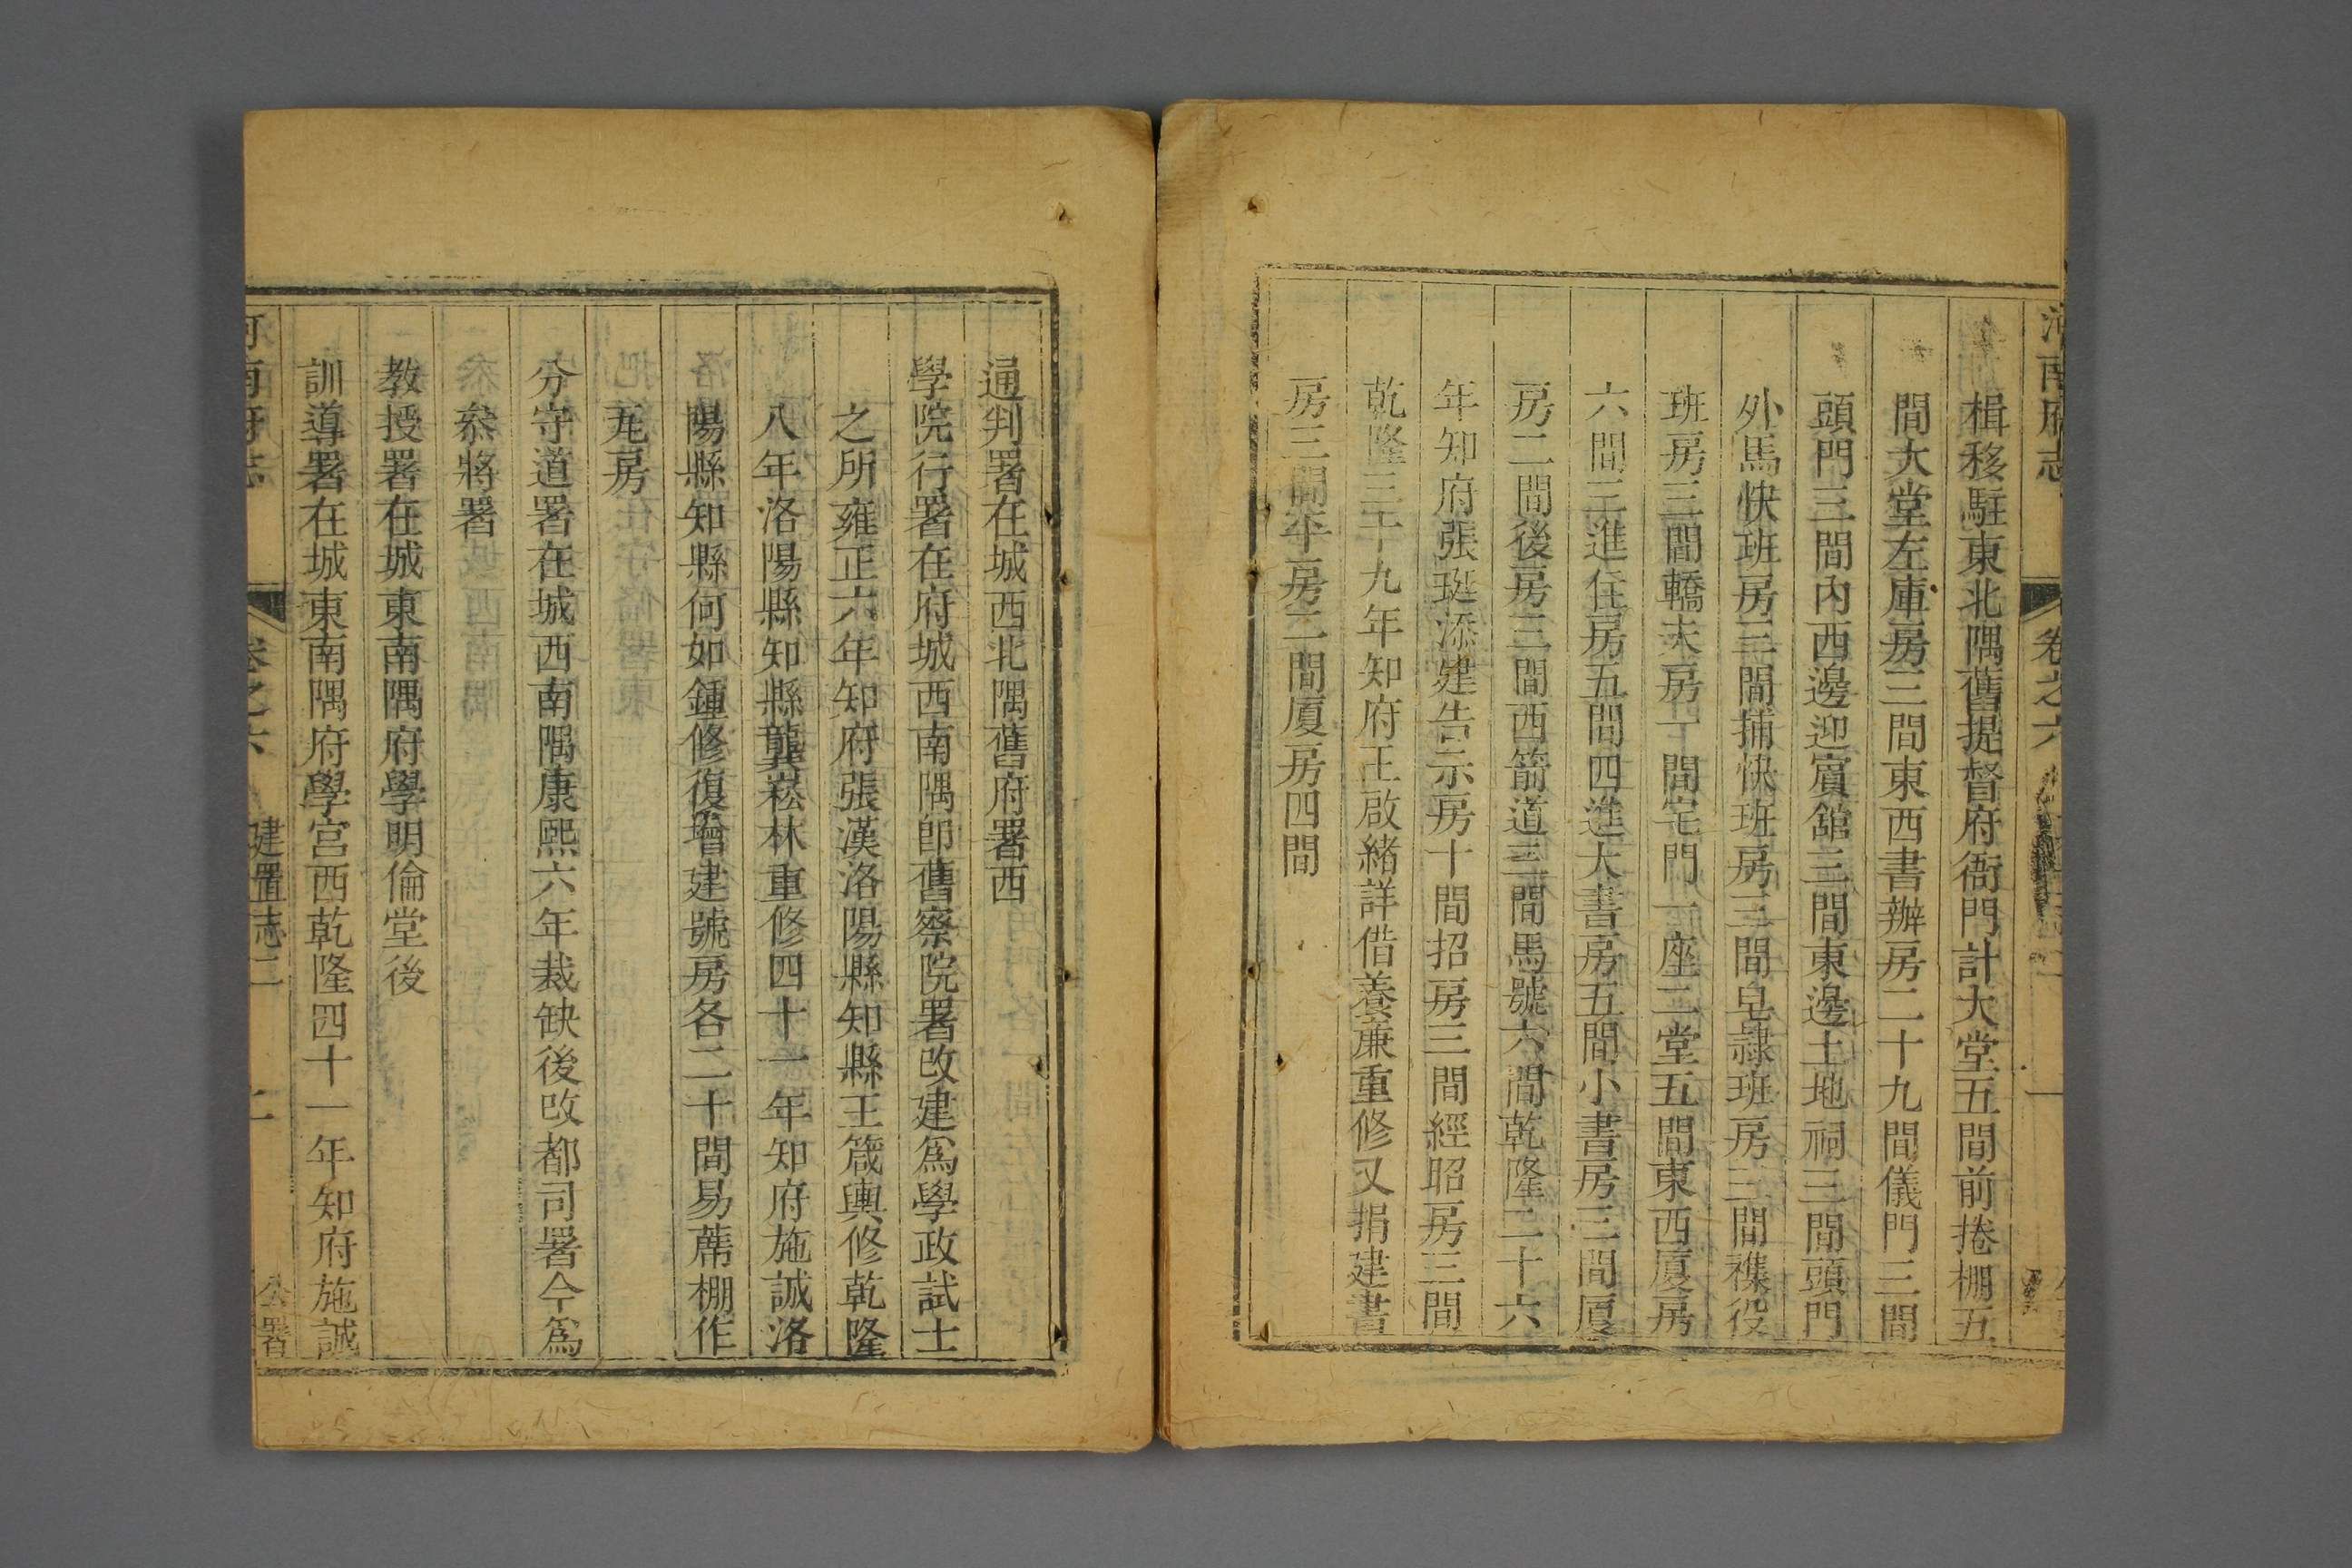 河南府志 卷之六
楫移駐東北隅舊提督府衙門計大堂五間前捲棚五
間大堂左庫房三間東西書辦房二十九間儀門三間
頭門三間內西邊迎賓舘三間東邊土地祠三間頭門
外馬快班房三間捕快班房三間皂隷班房三間襍役
班房三間轎夫房一間宅門一座二堂五間東西厦房
六間三進住房五間四進大書房五間小書房三間厦
房二間後房三間西箭道三間馬號六間乾隆二十六
年知府張珽添建告示房十間招房三間經昭房三間
乾隆三十九年知府王啟緒詳借養亷重修又捐建書
房三間平房二間厦房四間
通判署在城西北隅舊府署西
學院行署在府城西南隅卽舊察院署改建爲學政試士
之所雍正六年知府張漢洛陽縣知縣王箴輿修乾隆
八年洛陽縣知縣龔崧林重修四十一年知府施誠洛
陽縣知縣何如鍾修復增建號房各二十間易蓆棚作
瓦房
分守道署在城西南隅康熙六年裁缺後改都司署今爲
叅將署
教授署在城東南隅府學明倫堂後
訓導署在城東南隅府學宮西乾隆四十一年知府施誠
河南府志 卷之六 建置志二 公署